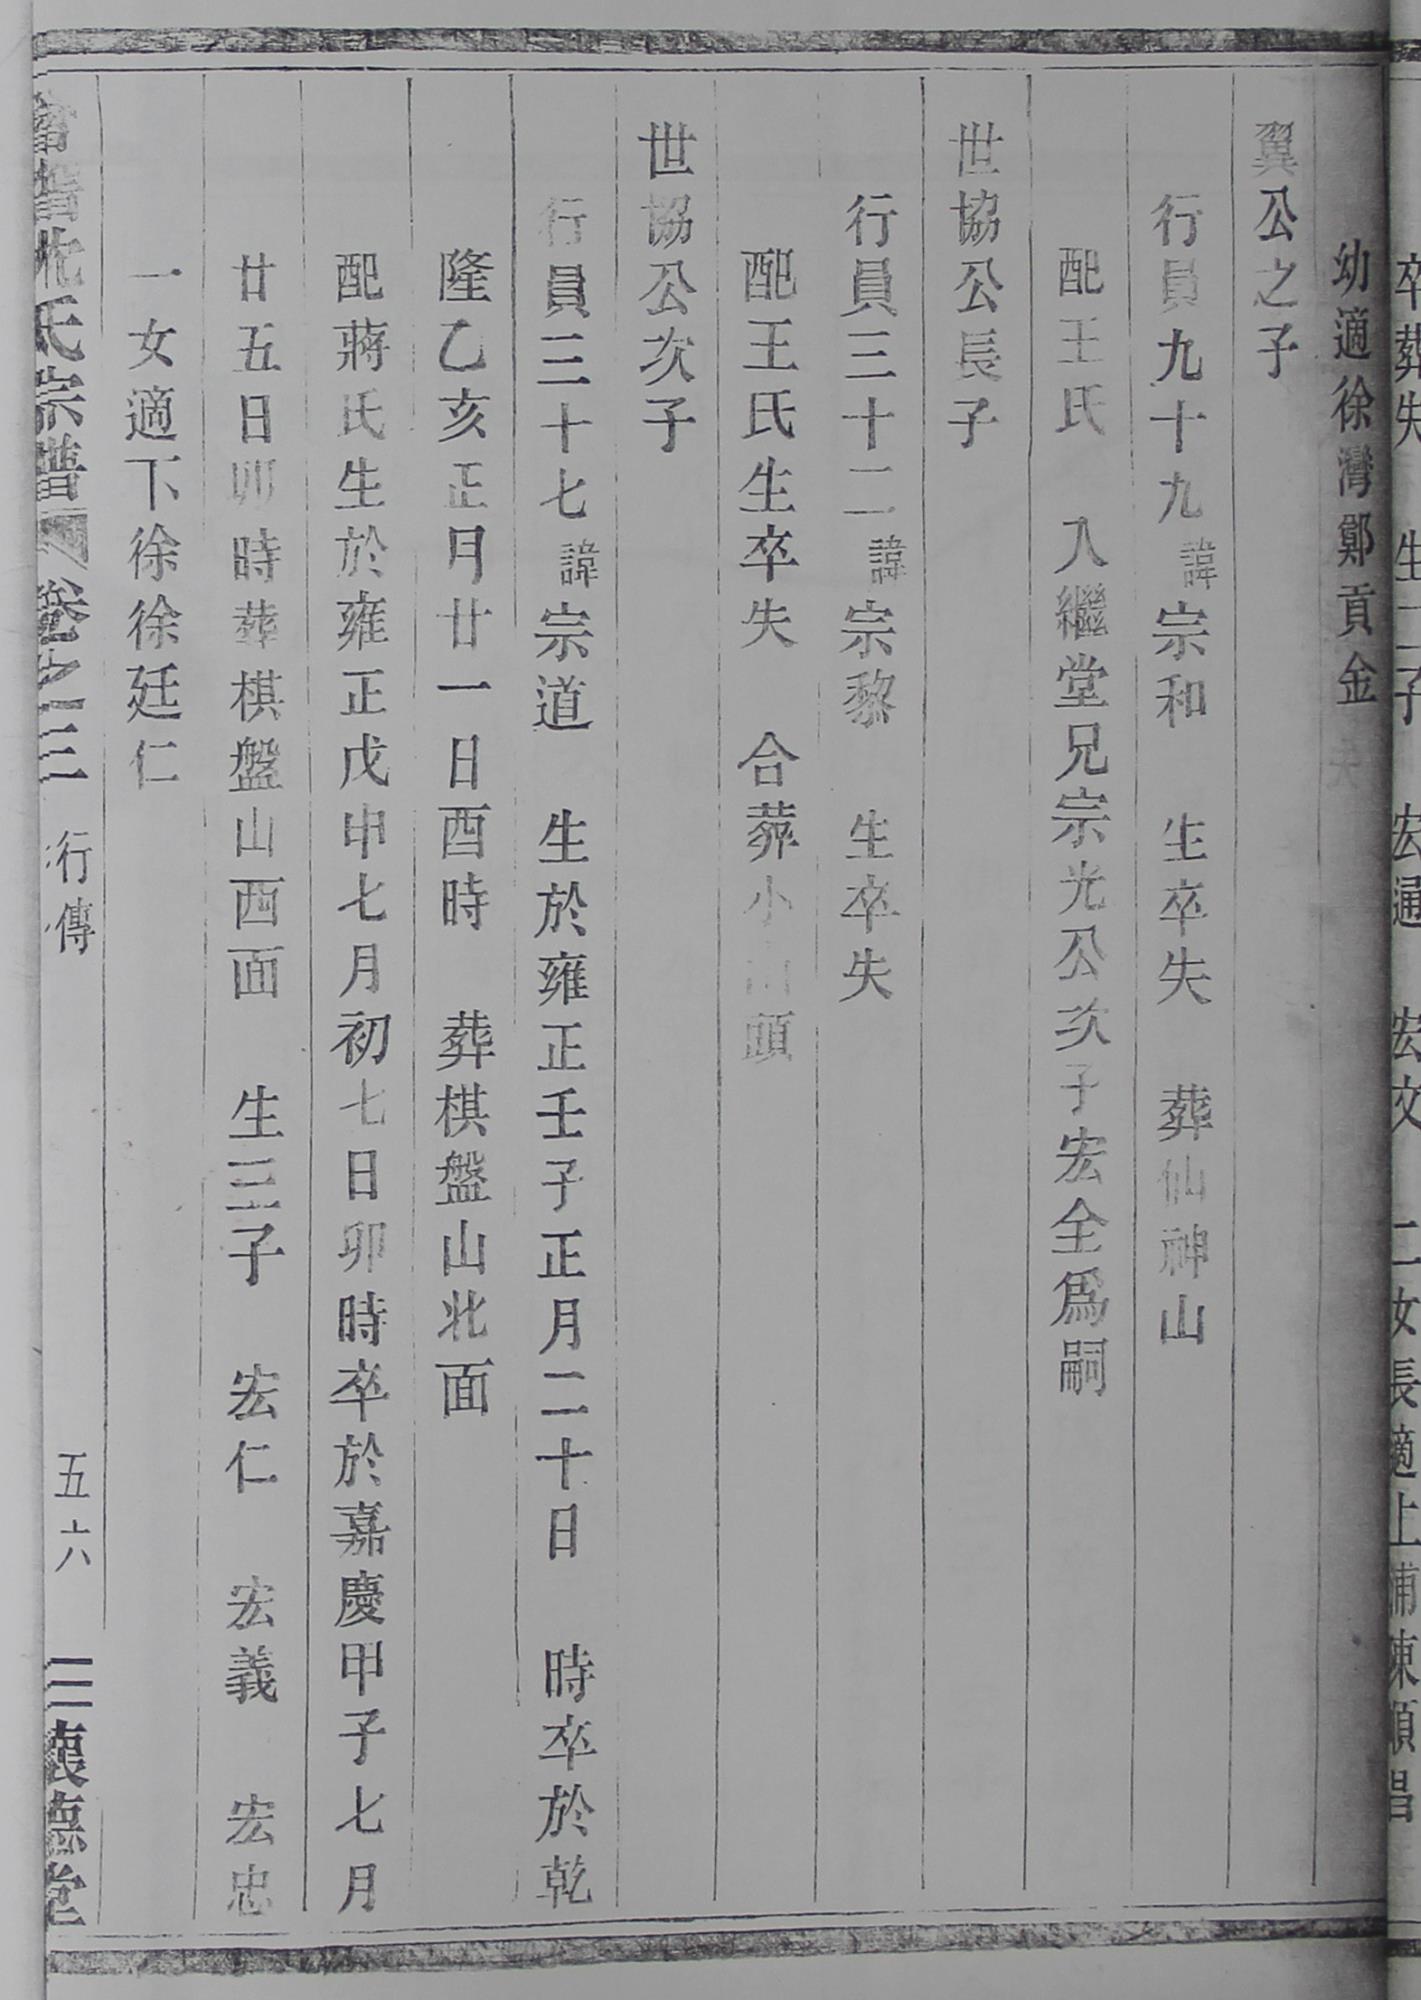 卒葬失　生二子　宏通　宏文　二女長適上浦陳順昌
幼適徐灣鄭貢金
翼公之子
行員九十九諱宗和　生卒失　葬仙神山
配王氏　入繼堂兄宗光公次子宏全爲嗣
世協公長子
行員三十二諱宗黎　生卒失
配王氏生卒失　合葬小山頭
世協公次子
行員三十七諱宗道　生於雍正壬子正月二十日　時卒於乾
隆乙亥正月廿一日酉時　葬棋盤山北面
配蔣氏生於雍正戊申七月初七日卯時卒於嘉慶甲子七月
廿五日卯時葬棋盤山西面　生三子　宏仁　宏義　宏忠
一女適下徐徐廷仁
氏宗譜　卷之三　行傳　五六　三懷德堂